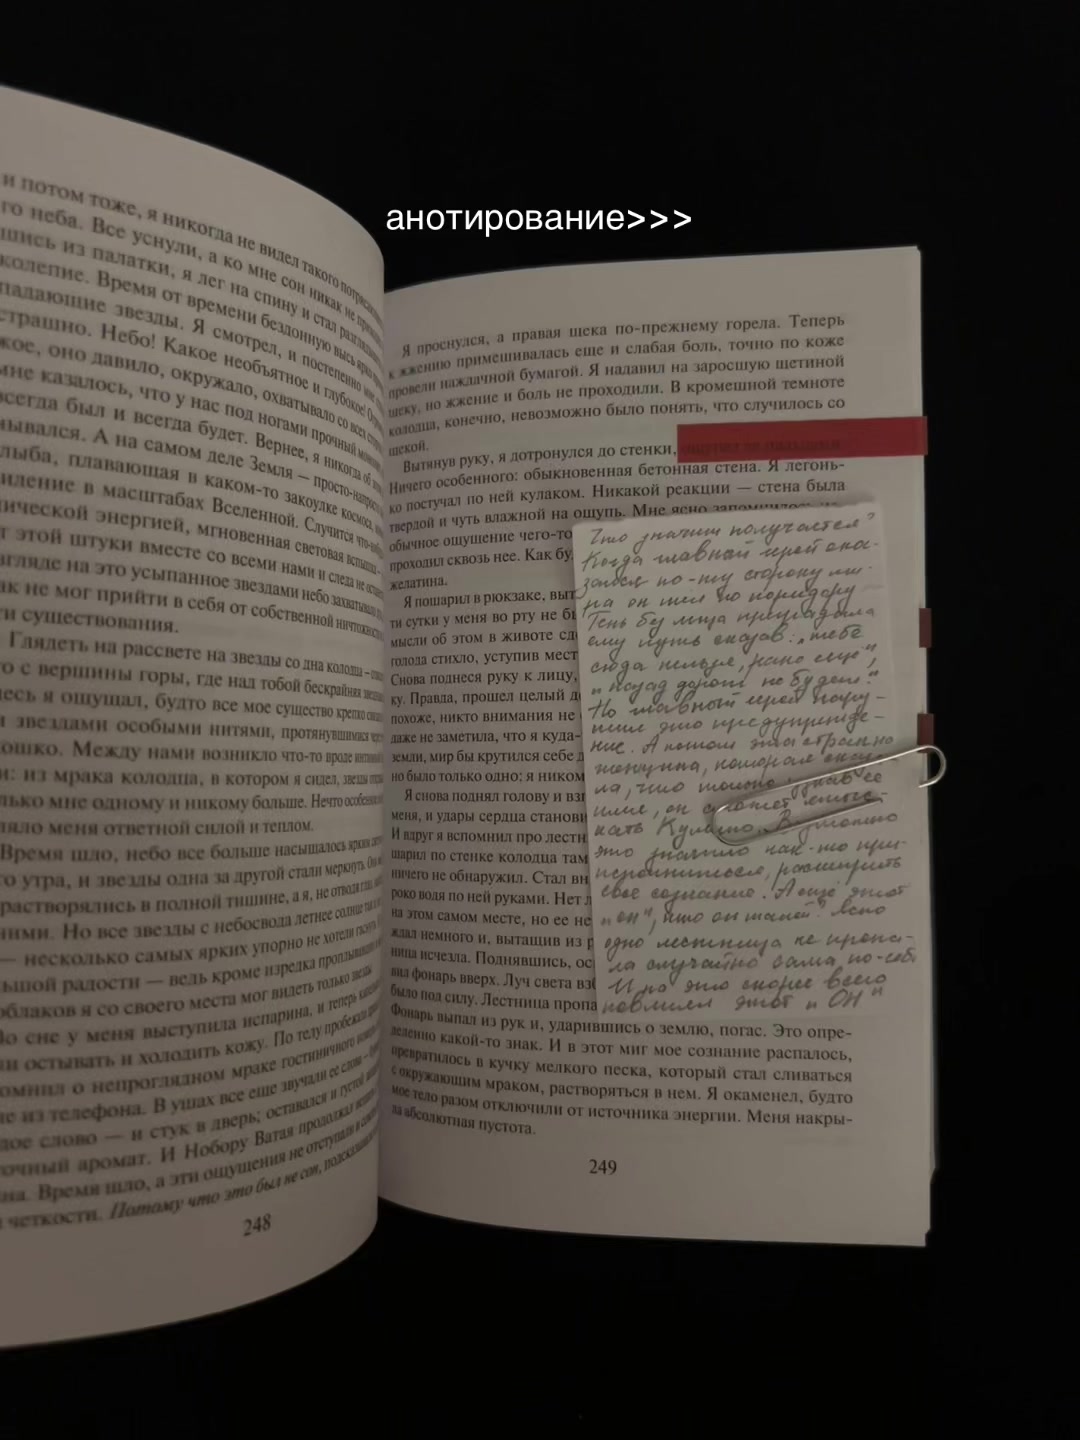 анотирование>>>
и потом тоже, я никогда не видел такого
го неба. Все уснули, а ко мне сон никак не
шись из палатки, я лег на спину и стал
колепие. Время от времени бездонную высь
падающие звезды. Я смотрел, и постепенно мне
страшно. Небо! Какое необъятное и глубокое!
кое, оно давило, окружало, охватывало со всех
мне казалось, что у нас под ногами прочный
всегда был и всегда будет. Вернее, я никогда об
мывался. А на самом деле Земля — просто-напросто
лыба, плавающая в каком-то закоулке космоса,
явление в масштабах Вселенной. Случится что-нибудь
мической энергией, мгновенная световая вспышка —
т этой штуки вместе со всеми нами и следа не останется
взгляде на это усыпанное звездами небо захватывало
ак не мог прийти в себя от собственной ничтожности
ти существования.
Глядеть на рассвете на звезды со дна колодца —
то с вершины горы, где над тобой бескрайняя
десь я ощущал, будто все мое существо крепко
и звездами особыми нитями, протянувшимися через
ошко. Между нами возникло что-то вроде
и: из мрака колодца, в котором я сидел, звезды
лько мне одному и никому больше. Нечто особенное
ляло меня ответной силой и теплом.
Время шло, небо все больше насыщалось ярким
го утра, и звезды одна за другой стали меркнуть. Они
растворялись в полной тишине, а я, не отводя глаз,
ними. Но все звезды с небосвода летнее солнце
— несколько самых ярких упорно не хотели гаснуть.
льшой радости — ведь кроме изредка проплывавших
облаков я со своего места мог видеть только звезды.
Во сне у меня выступила испарина, и теперь
ли остывать и холодить кожу. По телу пробежала
помнил о непроглядном мраке гостиничного номера
не из телефона. В ушах все еще звучали ее слова —
дое слово — и стук в дверь; оставался и густой
точный аромат. И Нобору Ватая продолжал
на. Время шло, а эти ощущения не отступали
и четкости. Потому что это был не сон,
248
Я проснулся, а правая щека по-прежнему горела. Теперь
к жжению примешивалась еще и слабая боль, точно по коже
провели наждачной бумагой. Я надавил на заросшую щетиной
щеку, но жжение и боль не проходили. В кромешной темноте
колодца, конечно, невозможно было понять, что случилось со
щекой.
Вытянув руку, я дотронулся до стенки,
Ничего особенного: обыкновенная бетонная стена. Я легонь-
ко постучал по ней кулаком. Никакой реакции — стена была
твердой и чуть влажной на ощупь. Мне ясно запомнилось
обычное ощущение чего-то
проходил сквозь нее. Как бу
желатина.
Я пошарил в рюкзаке, выт
ти сутки у меня во рту не бы
мысли об этом в животе сд
голода стихло, уступив мест
Снова поднеся руку к лицу,
ку. Правда, прошел целый д
похоже, никто внимания не
даже не заметила, что я куда-
земли, мир бы крутился себе д
но было только одно: я ником
Я снова поднял голову и взг
меня, и удары сердца станови
И вдруг я вспомнил про лестн
шарил по стенке колодца там
ничего не обнаружил. Стал вн
роко водя по ней руками. Нет л
на этом самом месте, но ее не
ждал немного и, вытащив из р
ница исчезла. Поднявшись, ос
вил фонарь вверх. Луч света вз
было под силу. Лестница пропа
Фонарь выпал из рук и, ударившись о землю, погас. Это опре-
деленно какой-то знак. И в этот миг мое сознание распалось,
превратилось в кучку мелкого песка, который стал сливаться
с окружающим мраком, растворяться в нем. Я окаменел, будто
мое тело разом отключили от источника энергии. Меня накры-
ла абсолютная пустота.
249
Что значит получается?
Когда главной герой ока-
зался по-ту сторону ми-
ра он шел по коридору
Тень без лица преградила
ему путь сказав: "тебе
сюда нельзя, рано ещё",
"назад дороги не будет!"
Но главной герой нару-
шил это предупрежде-
ние. А потом эта странно
женщина, которая сказа-
ла, что только узнав ее
имя, он сможет отыс-
кать Кумико. Возможно
это значило как-то при-
расширить
свое сознание. А ещё этот
"он", кто он такой? Ясно
одно лестница не пропа-
ла случайно сама по-себе
И на это скорее всего
повлиял этот "ОН"